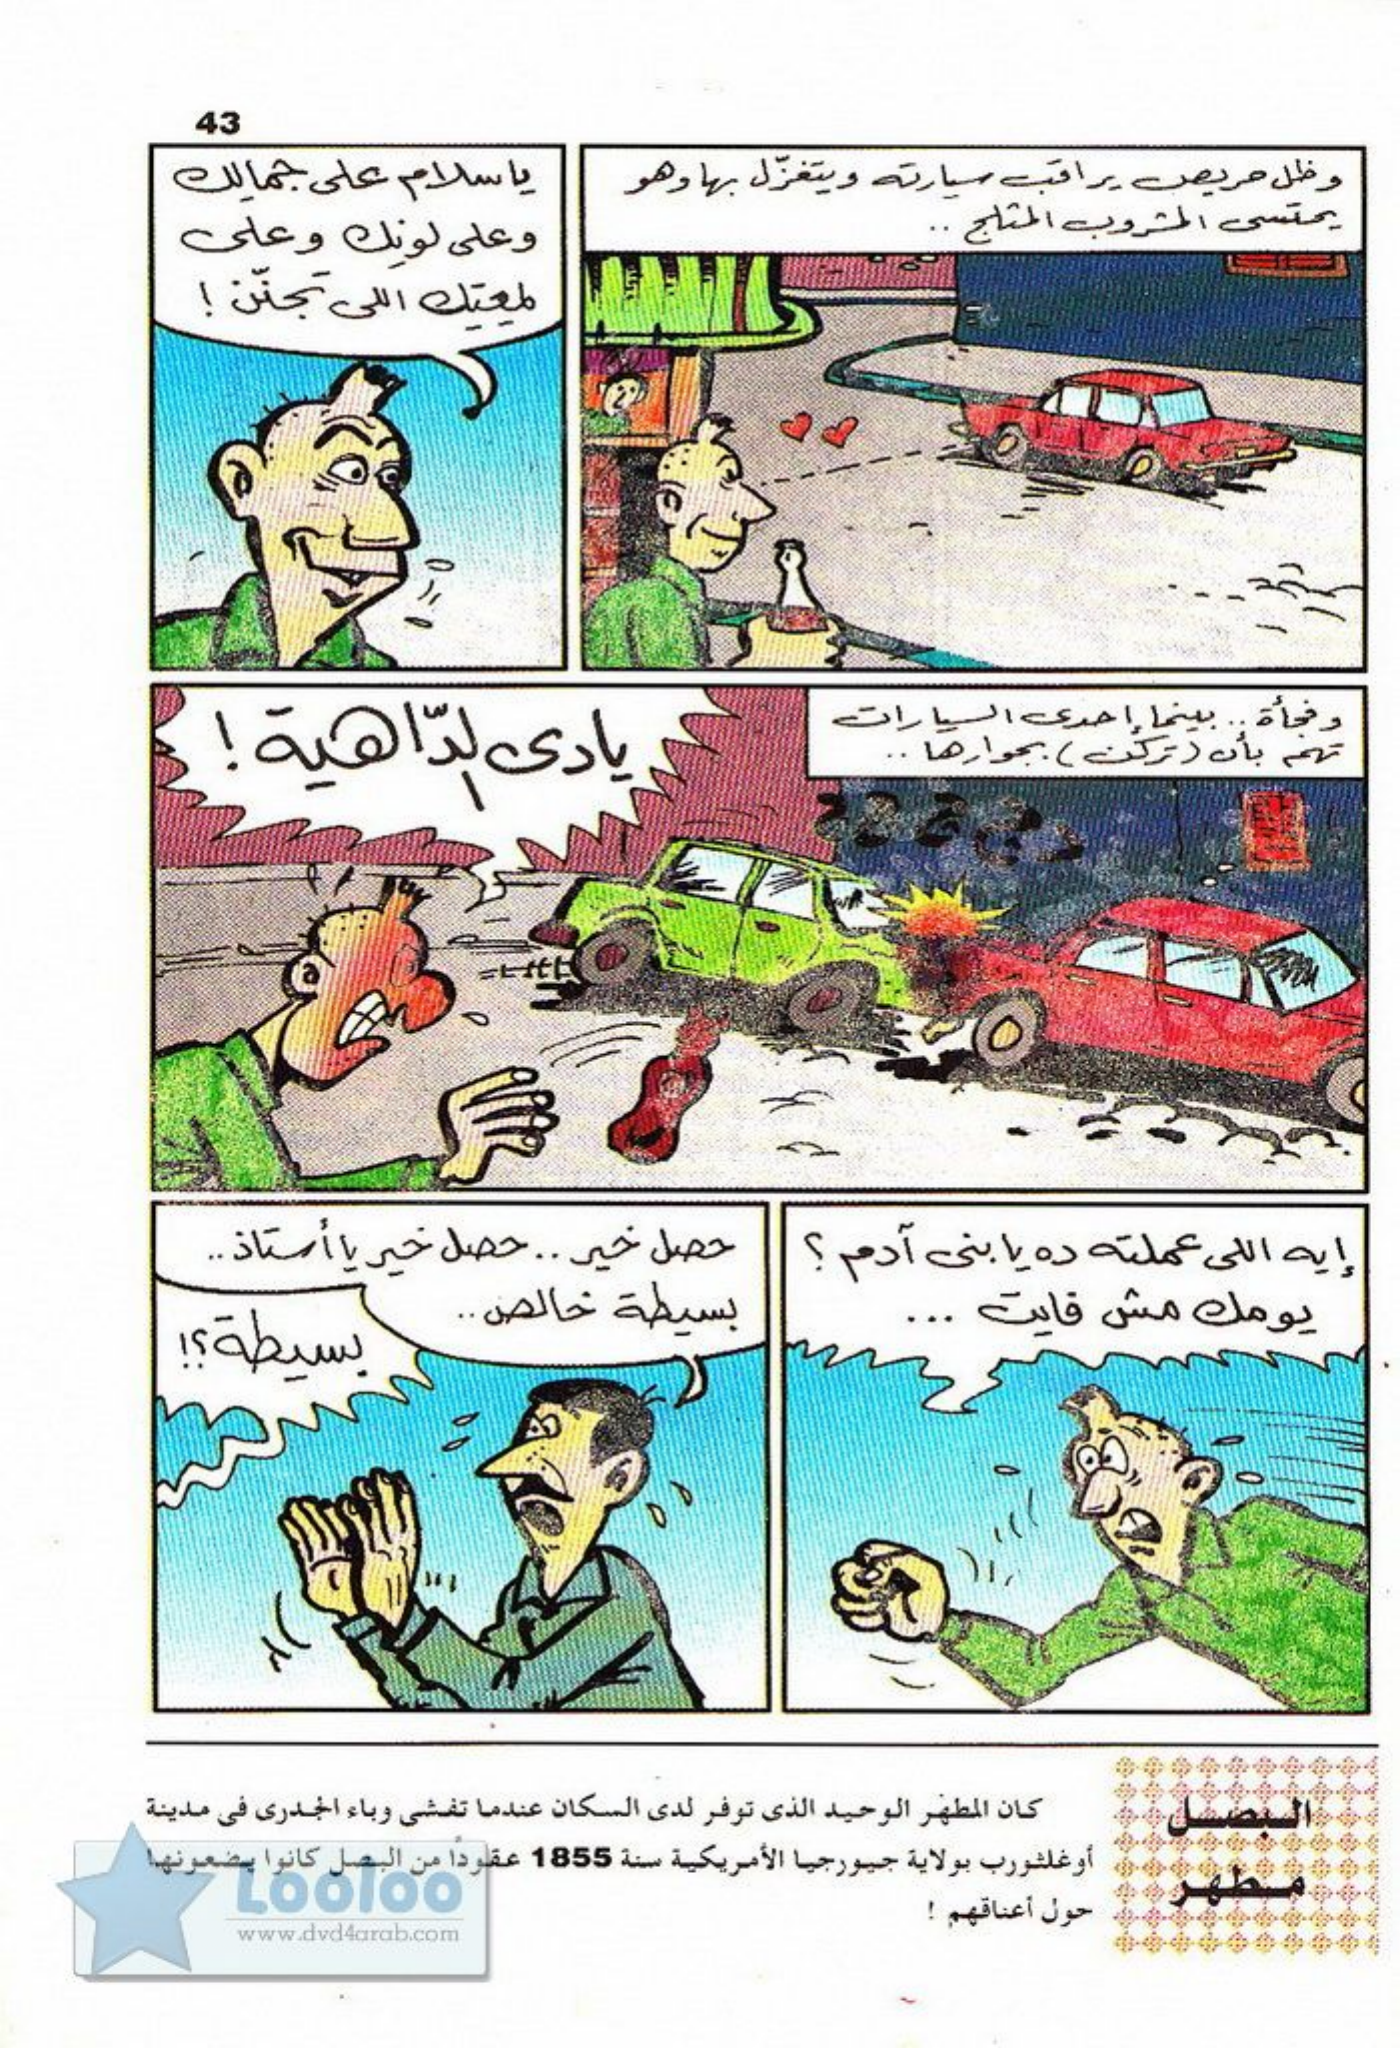 43
وظل حريص يراقب سيارته ويتغزّل بها وهو
يحتسى المشروب المثلج ..
ياسلام على جمالك
وعلى لونك وعلى
لمعتك اللى تجنّن !
وفجأة .. بينما إحدى السيارات
تهم بأن (تركن) بجوارها ..
يادى الدّاهية !
إيه اللى عملته ده يا بنى آدم ؟
يومك مش فايت ...
حصل خير .. حصل خير يا أستاذ ..
بسيطة خالص ..
بسيطة ؟!
البصل
مطهر
كان المطهر الوحيد الذى توفر لدى السكان عندما تفشى وباء الجدرى فى مدينة
أوغلثورب بولاية جيورجيا الأمريكية سنة 1855 عقوداً من البصل كانوا يضعونها
حول أعناقهم !
Looloo
www.dvd4arab.com